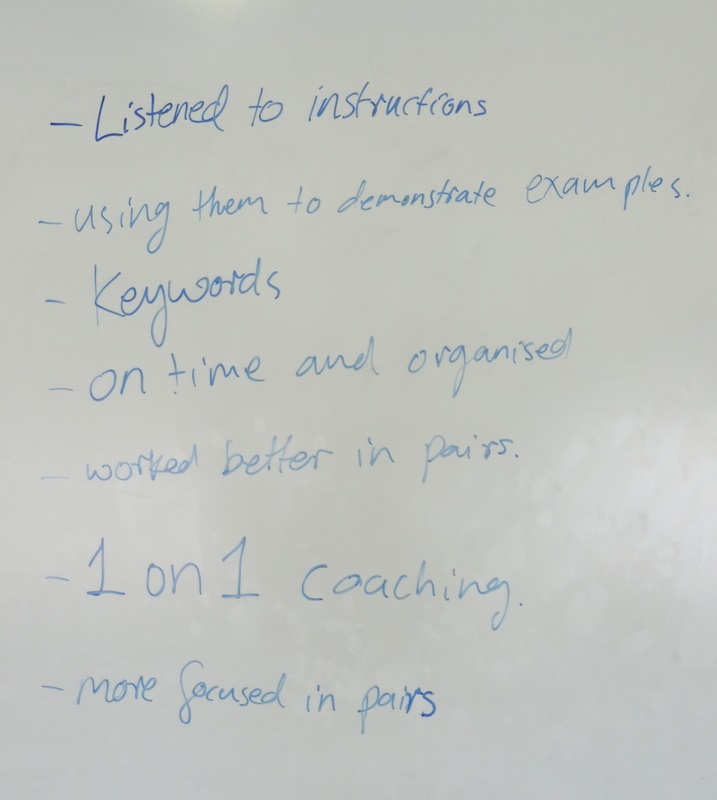 - Listened to instructions
- using them to demonstrate examples.
- Keywords
- on time and organised
- worked better in pairs.
- 1 on 1 coaching.
- more focused in pairs